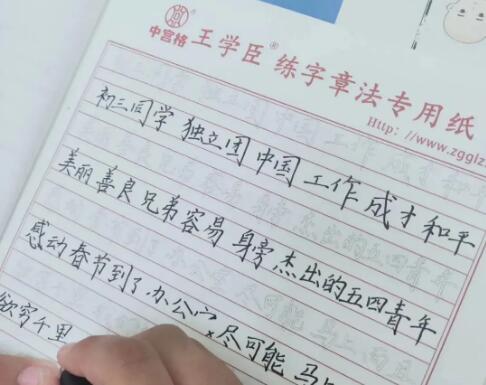 中宫格 王学臣® 练字章法专用纸
Http://www.zgglz
初三同学 独立团 中国 工作 成才和平
美丽善良兄弟容易 身旁 杰出的五四青年
感动春节到了办公 尽可能 马上
欲穷千里